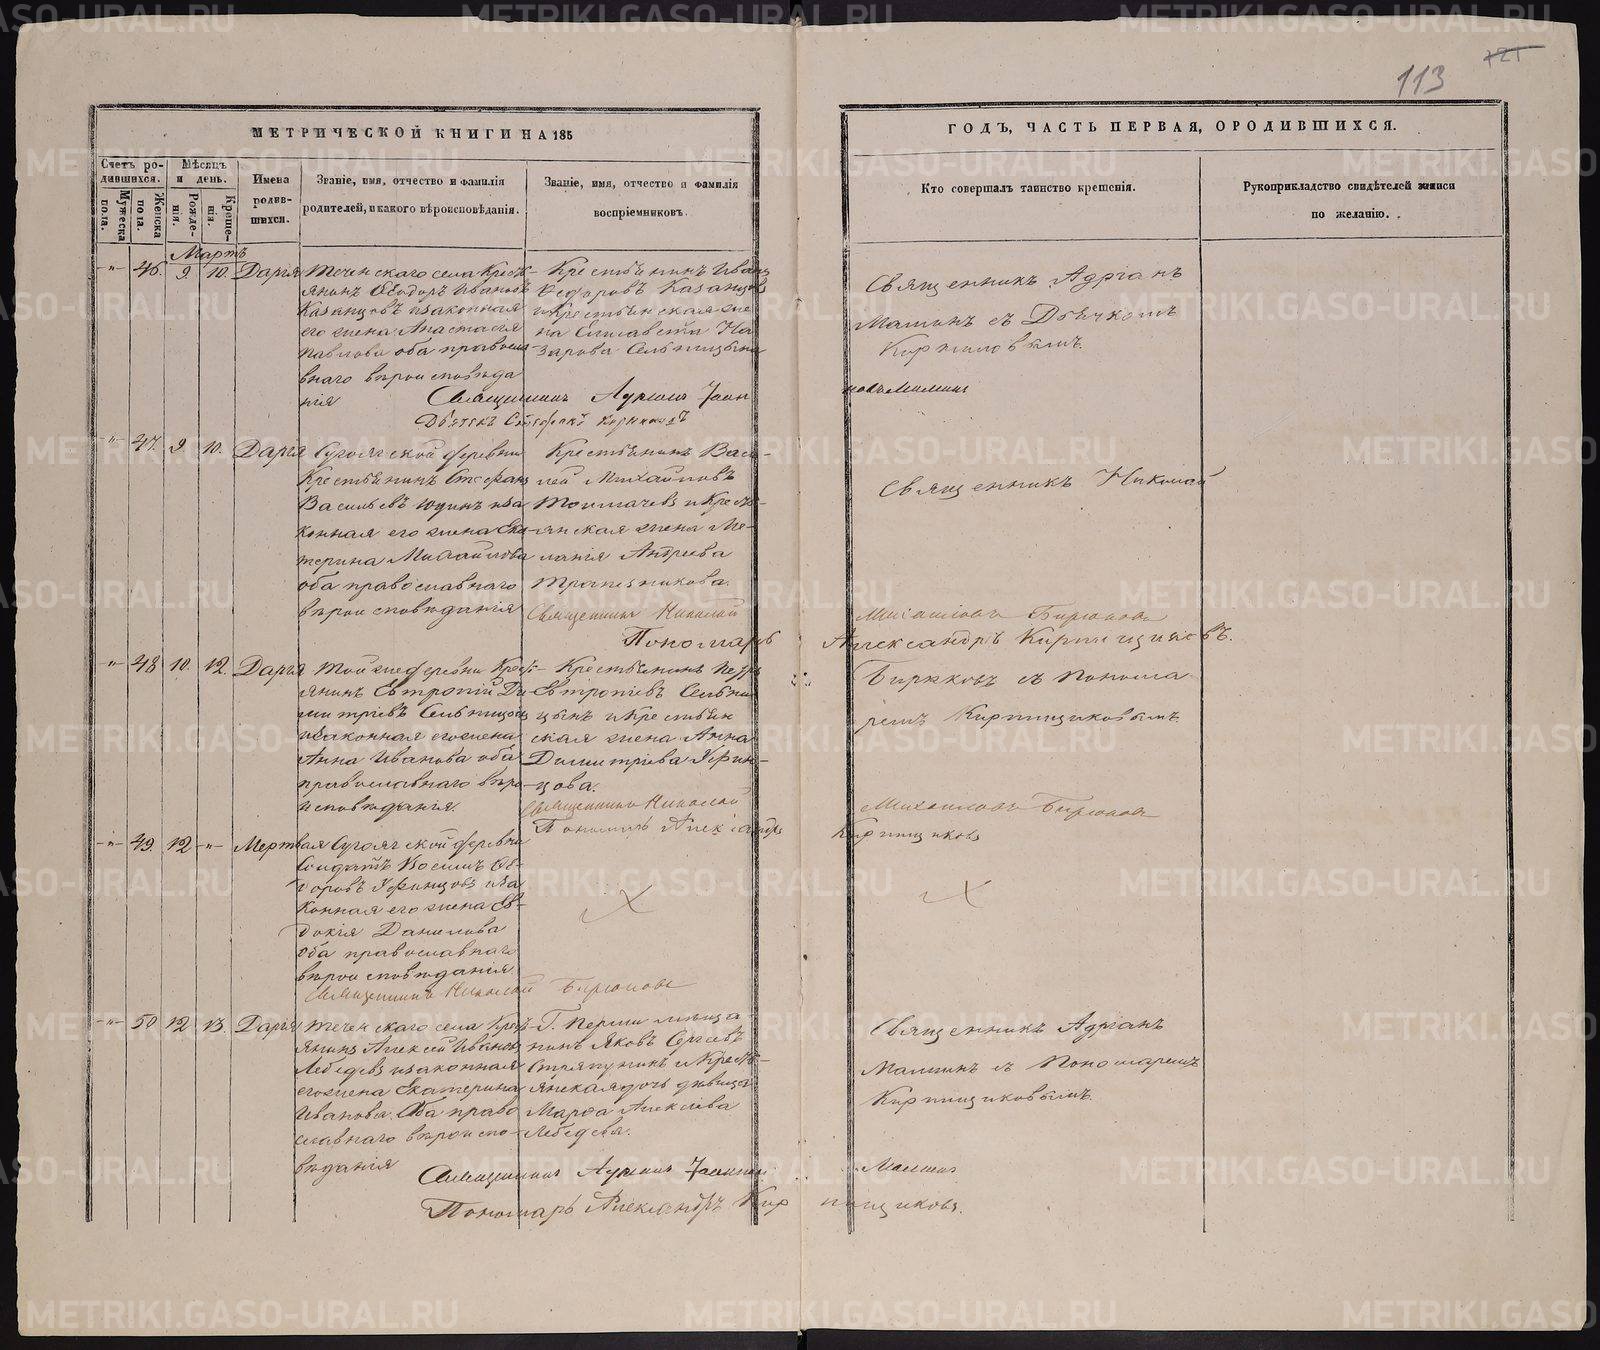 113
МЕТРИЧЕСКОЙ КНИГИ НА 185
ГОДЪ, ЧАСТЬ ПЕРВАЯ, О РОДИВШИХСЯ.
Счетъ ро-
дившихся.
Мужеска
пола.
Женска
пола.
Мѣсяцъ
и день.
Рожде-
нія.
Креще-
нія.
Имена
родив-
шихся.
Званіе, имя, отчество и фамилія
родителей, и какого вѣроисповѣданія.
Званіе, имя, отчество и фамилія
воспріемниковъ.
Кто совершалъ таинство крещенія.
Рукоприкладство свидѣтелей записи
по желанію.
Мартъ
46. 9. 10. Дарія
Теченскаго села Кресть-
янинъ Ѳеодоръ Ивановъ
Казанцовъ и законная
его жена Анастасія
Павлова оба правосла-
внаго вѣроисповѣда
нія
Крестьянинъ Иванъ
Ѳедоровъ Казанцовъ
и Крестьянская же
на Елисавета На
зарова Сельницына
Священникъ Адріанъ
Маминъ съ Дьячкомъ
Карпиловымъ.
47. 9 10. Дарія
Сугоякской деревни
Крестьянинъ Стефанъ
Васильевъ Юдинъ и за
конная его жена Ека-
терина Михайлова
оба православнаго
вѣроисповѣданія
Крестьянинъ Васи-
лей Михайловъ
Толмачевъ и Кресть-
янская жена Ме-
ланія Андреева
Трапезникова.
Священникъ Николай
Священникъ Николай
Михайловъ Бирюковъ
Пономарь
Александръ Кирпищиковъ.
48. 10. 12. Дарія
Той же деревни Кресть-
янинъ Евтропій Ди-
митріевъ Сельницынъ
и законная его жена
Анна Иванова оба
православнаго вѣро-
исповѣданія.
Крестьянинъ Петръ
Евтропіевъ Сельни
цынъ и Крестьян
ская жена Анна
Димитріева Уфин-
цова.
Священникъ Николай
Пономарь Александръ
Бирюковъ съ Понома
ремъ Кирпищиковымъ.
Михайловъ Бирюковъ
Кирпищиковъ
49. 12 Мертвая
Сугоякской деревни
Солдатъ Косьма Ѳе-
доровъ Уфинцовъ и за
конная его жена Ев-
докія Данилова
оба православнаго
вѣроисповѣданія.
Священникъ Николай Бирюковъ
50 12 13. Дарія
Теченскаго села Кресть-
янинъ Алексей Ивановъ
Лебедевъ и законная
его жена Екатерина
Иванова. Оба право
славнаго вѣроиспо-
вѣданія
Г. Перми мѣща
нинъ Яковъ Сергеевъ
Стряпунинъ и Кресть-
янская дочь дѣвица
Марѳа Алексіева
Лебедева.
Священникъ Адріанъ
Маминъ съ Пономаремъ
Кирпищиковымъ.
Маминъ
Пономарь Александръ Кир
пищиковъ.